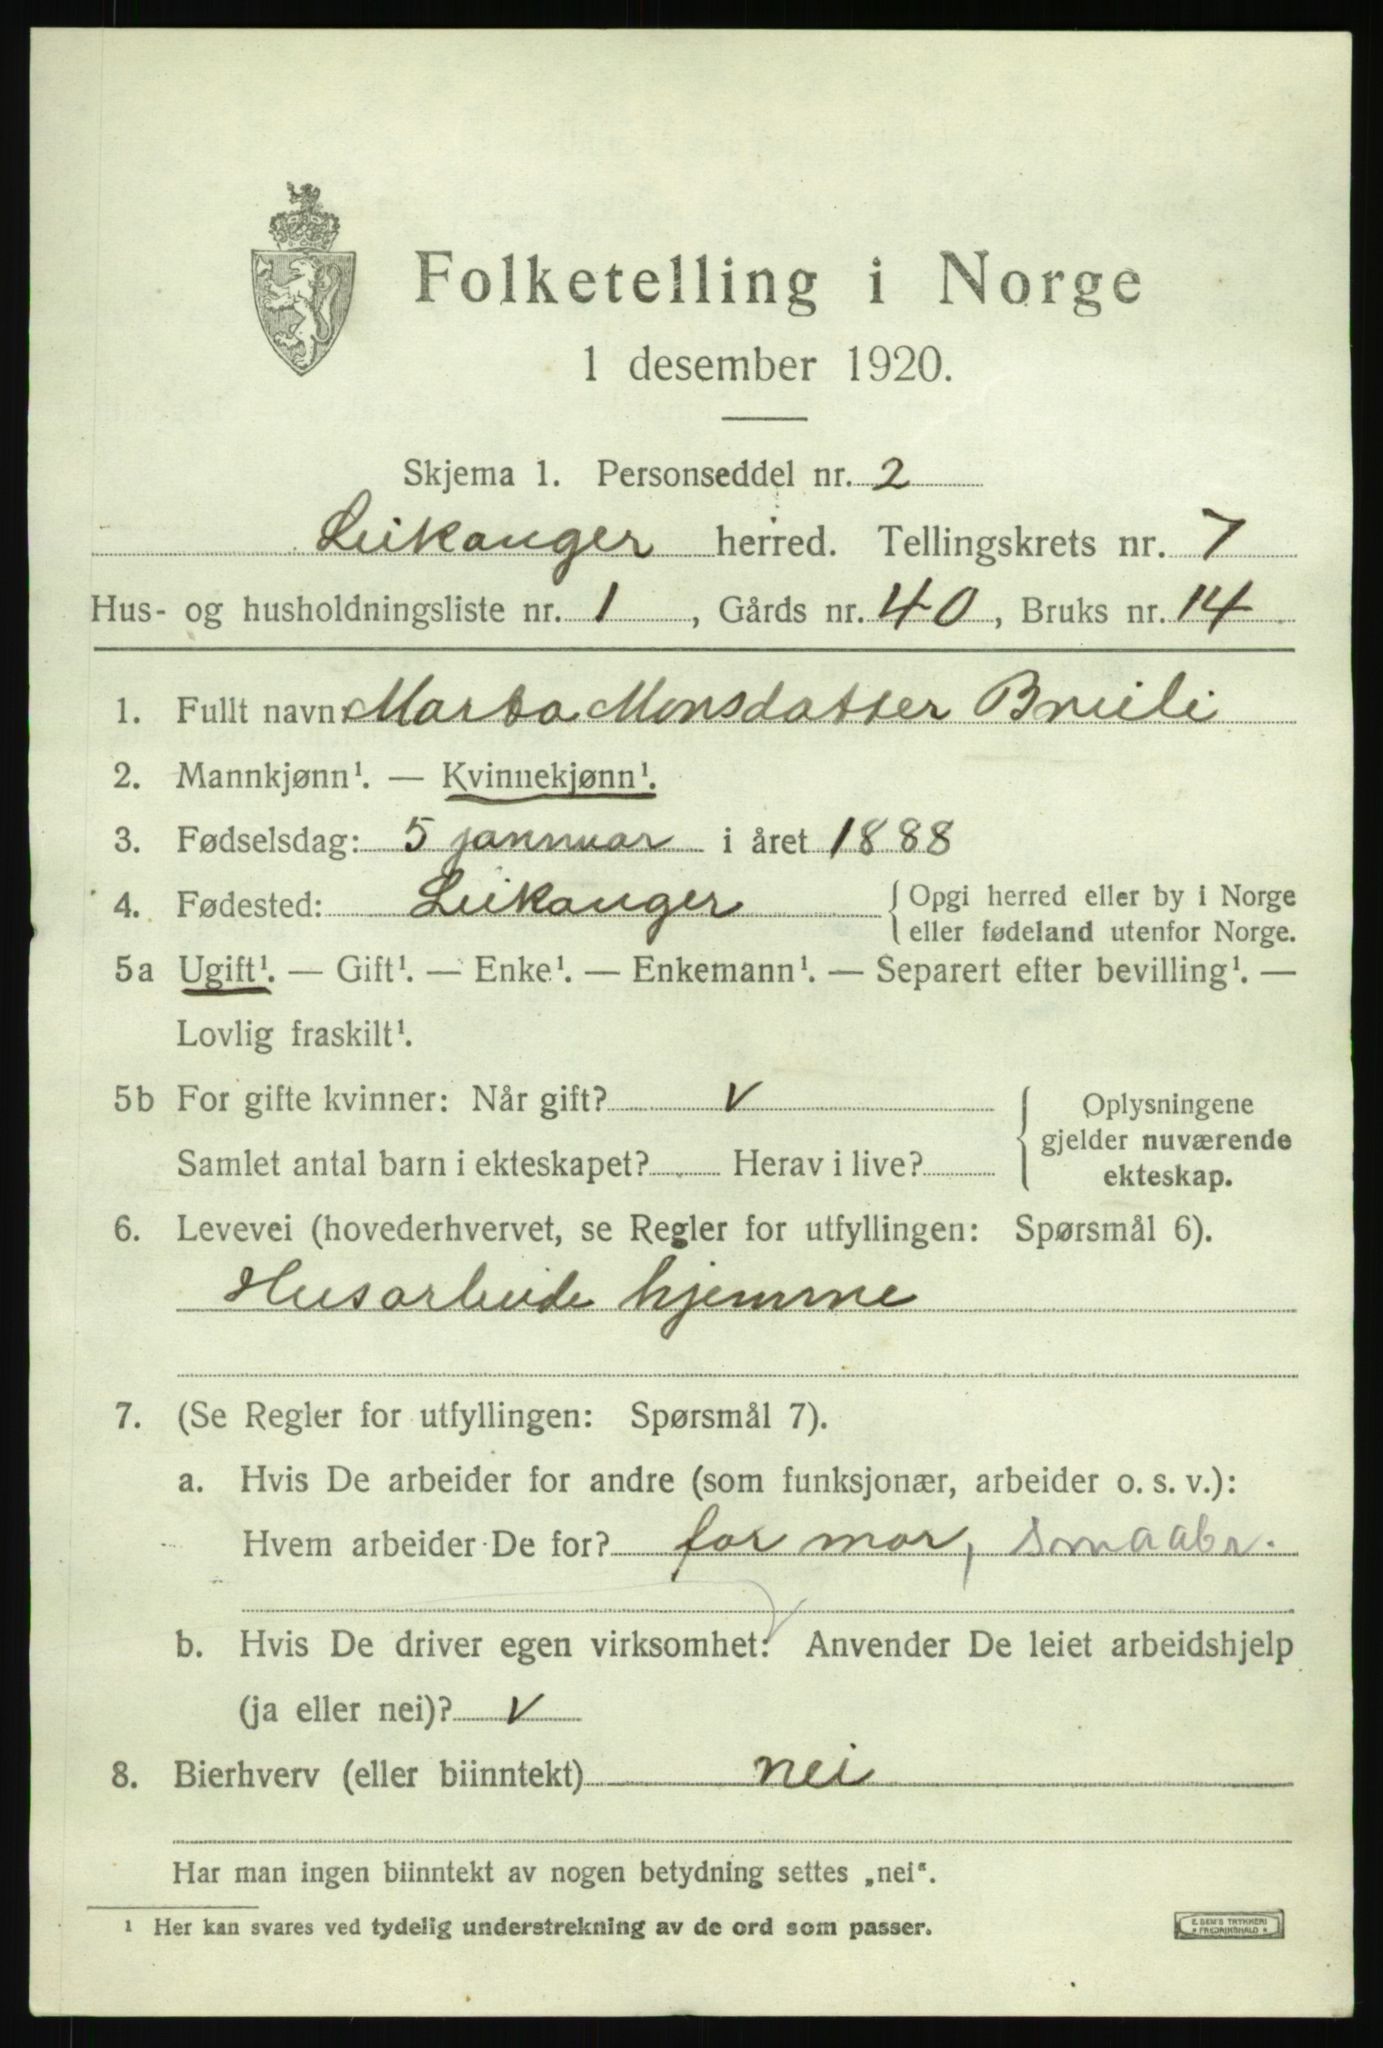 Folketelling i Norge
1 desember 1920.
Skjema 1. Personseddel nr. 2
Leikanger herred. Tellingskrets nr. 7
Hus- og husholdningsliste nr. 1, Gårds nr. 40, Bruks nr. 14
1. Fullt navn: Marta Monsdatter Brueli
2. Mannkjønn¹. — Kvinnekjønn¹.
3. Fødselsdag: 5 jannuar i året 1888
4. Fødested: Leikanger { Opgi herred eller by i Norge
eller fødeland utenfor Norge.
5a Ugift¹. — Gift¹. — Enke¹. — Enkemann¹. — Separert efter bevilling¹. —
Lovlig fraskilt¹.
5b For gifte kvinner: Når gift? v
Samlet antal barn i ekteskapet? Herav i live?
{ Oplysningene
gjelder nuværende
ekteskap.
6. Levevei (hovederhvervet, se Regler for utfyllingen: Spørsmål 6).
Husarbeide hjemme
7. (Se Regler for utfyllingen: Spørsmål 7).
a. Hvis De arbeider for andre (som funksjonær, arbeider o. s. v.):
Hvem arbeider De for? for mor, smaabr.
b. Hvis De driver egen virksomhet: Anvender De leiet arbeidshjelp
(ja eller nei)? v
8. Bierhverv (eller biinntekt) nei
Har man ingen biinntekt av nogen betydning settes „nei".
¹ Her kan svares ved tydelig understrekning av de ord som passer.
E. SEM'S TRYKKERI
* FREDRIKSHALD *